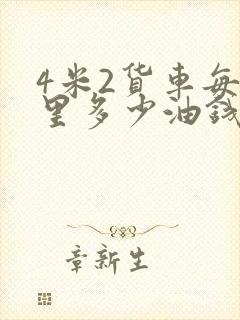 4米2货車每
里多少油錢
章新生